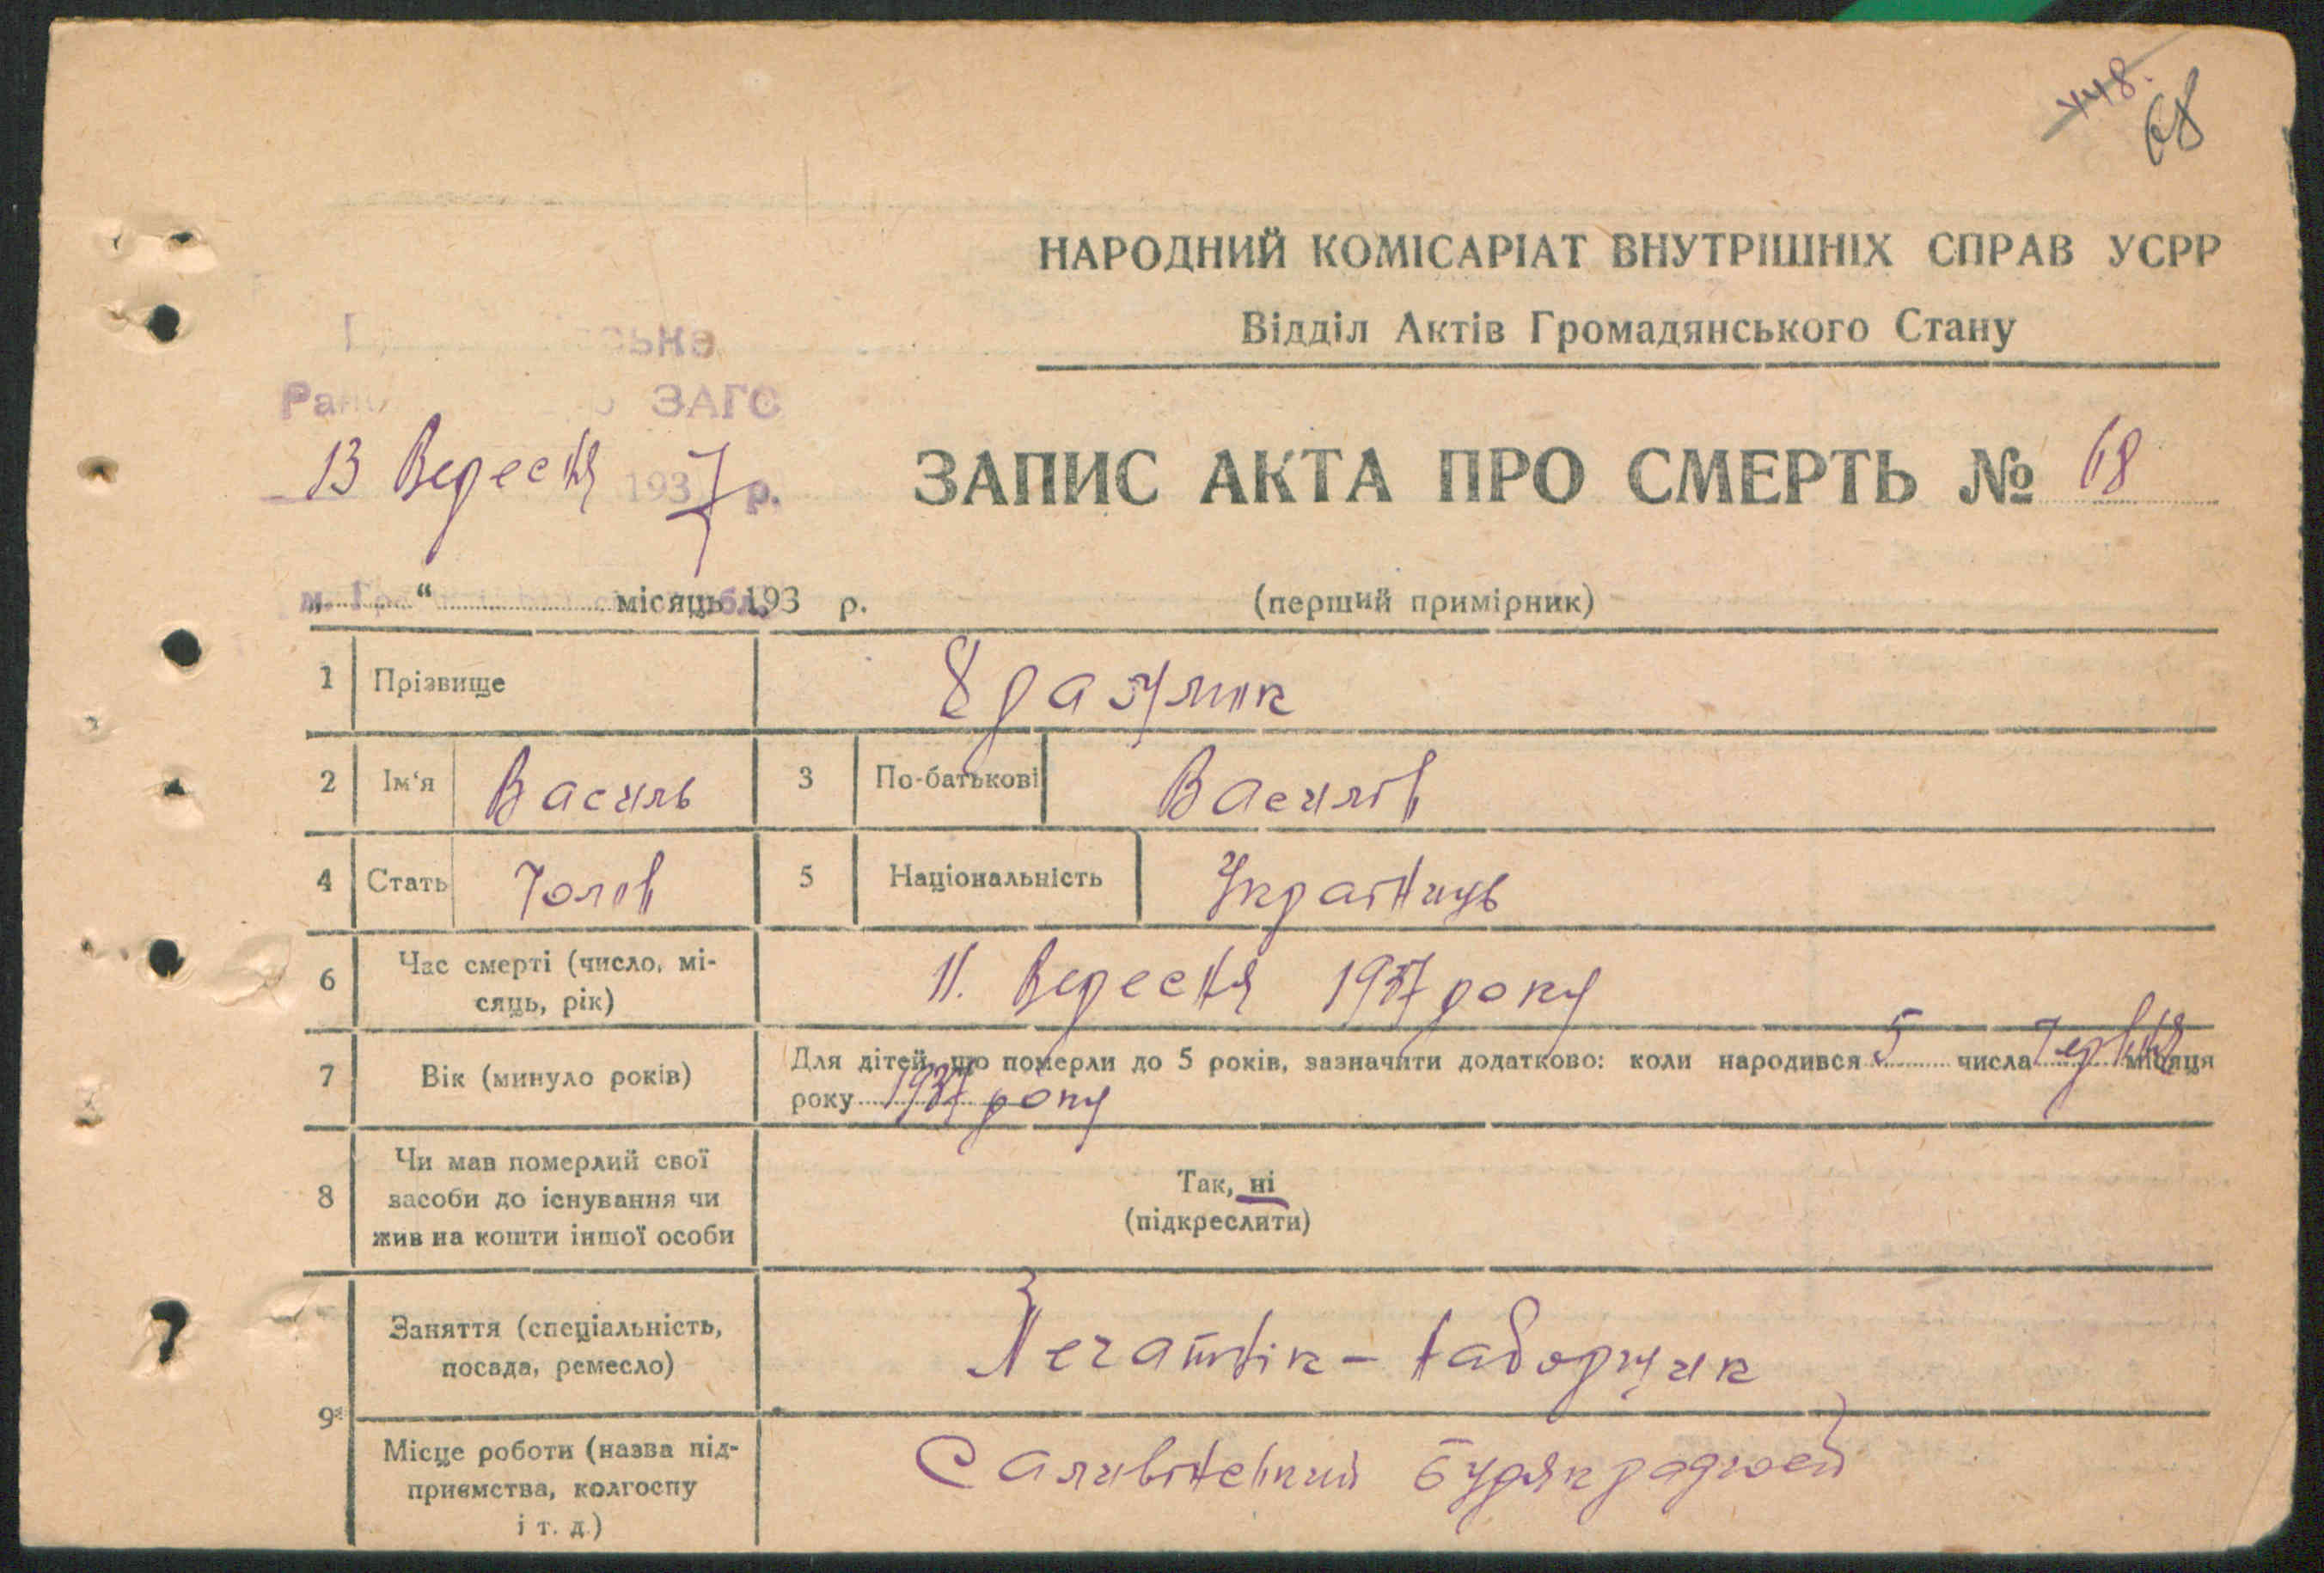 448.
68
НАРОДНИЙ КОМІСАРІАТ ВНУТРІШНІХ СПРАВ УСРР
Відділ Актів Громадянського Стану
ьна
ЗАГС
13 Вересня 1937 р.
ЗАПИС АКТА ПРО СМЕРТЬ № 68
„ “ місяць 193 р.
(перший примірник)
1 Прізвище
2 Ім‘я Василь 3 По-батькові Василів
4 Стать Чолов 5 Національність Українець
6 Час смерті (число, мі-
сяць, рік)
11. Вересня 1937 року
7 Вік (минуло років)
Для дітей, що померли до 5 років, зазначити додатково: коли народився 5 числа Червня місяця
року 1937 року
8 Чи мав померлий свої
засоби до існування чи
жив на кошти іншої особи
Так, ні
(підкреслити)
9 Заняття (спеціальність,
посада, ремесло)
Печатнік - наборщик
Місце роботи (назва під-
приємства, колгоспу
і т. д.)
Саливінський бурякрадгосп